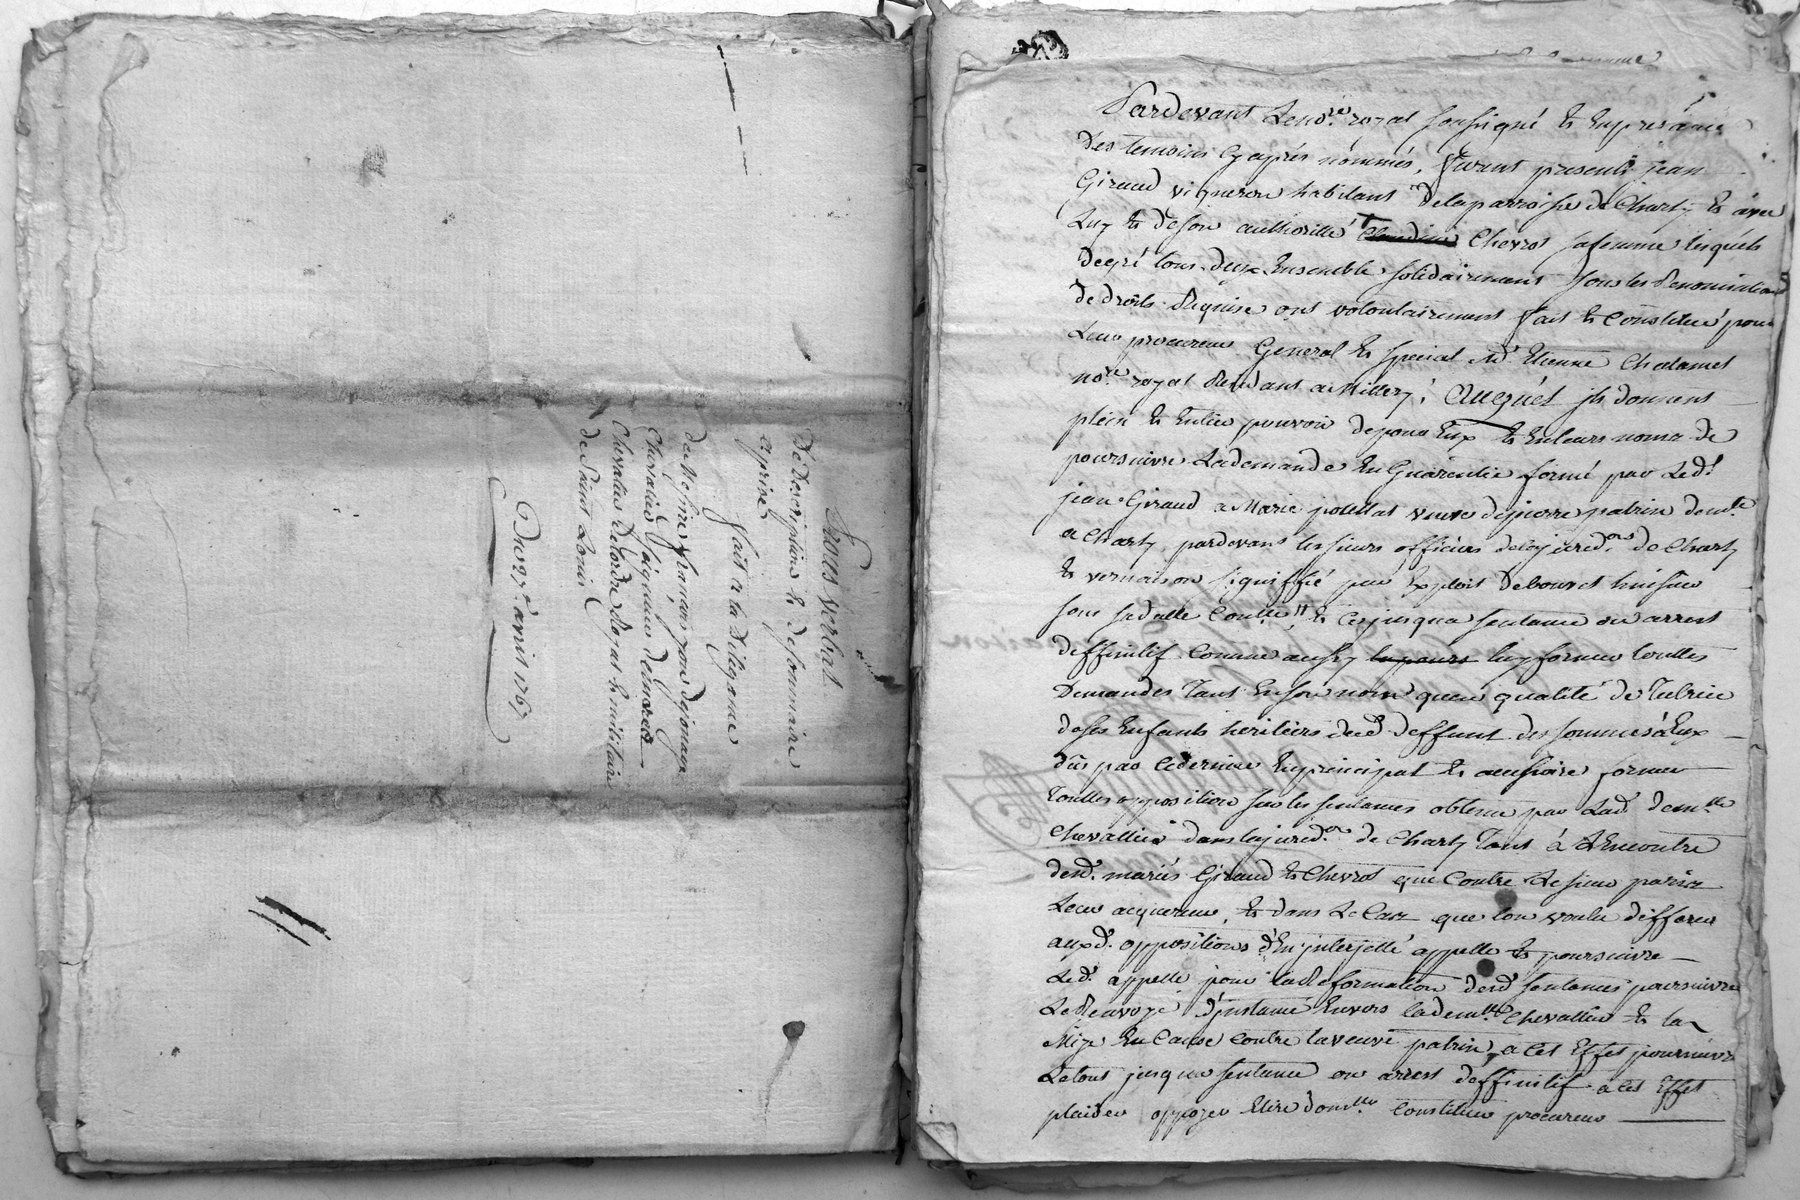 Prous verbal
De Description & de sommaire
a prise
fait a la diligence
de Messire françois
Chevalier seigneur
Chevalier de Lordre Royal & militaire
de Saint Louis
Du 27e avril 1767
Pardevant Le no.re royal soussigné & En presance
des temoins Cy aprés nommés, furent presents jean
Giraud vigneron habitant de la parroisse de Charly & avec
Luy & de son authorité Claudine Chevrot sa femme lesquels
de gré tous deux Ensemble solidairement sous les Renonciations
de droits Requise ont volontairement fait & Constitué pour
Leur procureur General & special Me. Etienne Chatamet
no.re royal Residant a Millery; Auquel jls donnent
plein & Entier pouvoir de pour Eux & En leurs noms de
poursuivre La demande En Guarentie formé par Led.
jean Giraud a Marie veuve de pierre patrin dem.te
a Charly pardevant les sieurs officiers de la jured.on de Charly
& vernaison signiffié par Exploit De bouret huissier
sous sa datte & Ce jusqua sentance ou arrest
deffinitif Comme aussy luy former touttes
Demandes tant En son nom quen qualité de Tutrice
de ses Enfants heritiers dud. deffunt des sommes à Eux
dus par Ce dernier En principal & accessoire former
touttes opposition sur les sentances obtenu par Lad. dem.lle
Chevallier dans la jured.on de Charly tant à Lencontre
desd. mariés Giraud & Chevrot que Contre Le sieur
Leur acquereur, & dans Le Cas que lon voulu differer
auxd. oppositions d'En jnterjetté appelle & poursuivre
Led. appelle pour la Reformation desd. sentances poursuivre
Le Renvoye d'jnstance Envers la dem.lle Chevallier & la
Mize En Cause Contre la veuve patrin, a Cet Effet poursuivre
Le tout jusqua sentance ou arrest deffinitif a Cet Effet
plaider opposer Elire dom.lle Constituer procureur